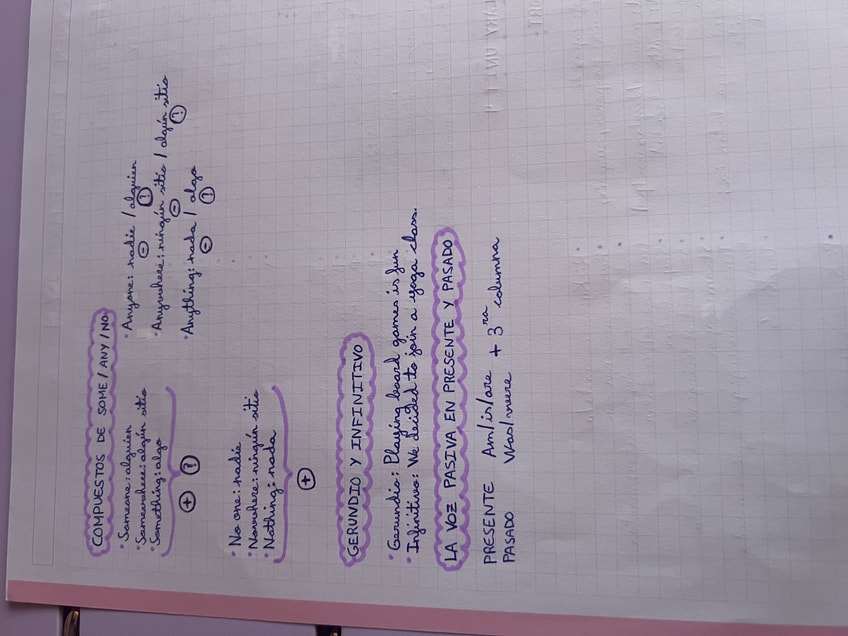 COMPUESTOS DE SOME/ANY/NO
• Someone: alguien
• Somewhere: algún sitio
• Something: algo
+ ?
• Anyone: nadie / alguien
- ?
• Anywhere: ningún sitio / algún sitio
- ?
• Anything: nada / algo
- ?
• No one: nadie
• Nowhere: ningún sitio
• Nothing: nada
+
GERUNDIO Y INFINITIVO
• Gerundio: Playing board games is fun
• Infinitivo: We decided to join a yoga class.
LA VOZ PASIVA EN PRESENTE Y PASADO
PRESENTE Am/is/are + 3ra columna
PASADO Was/were